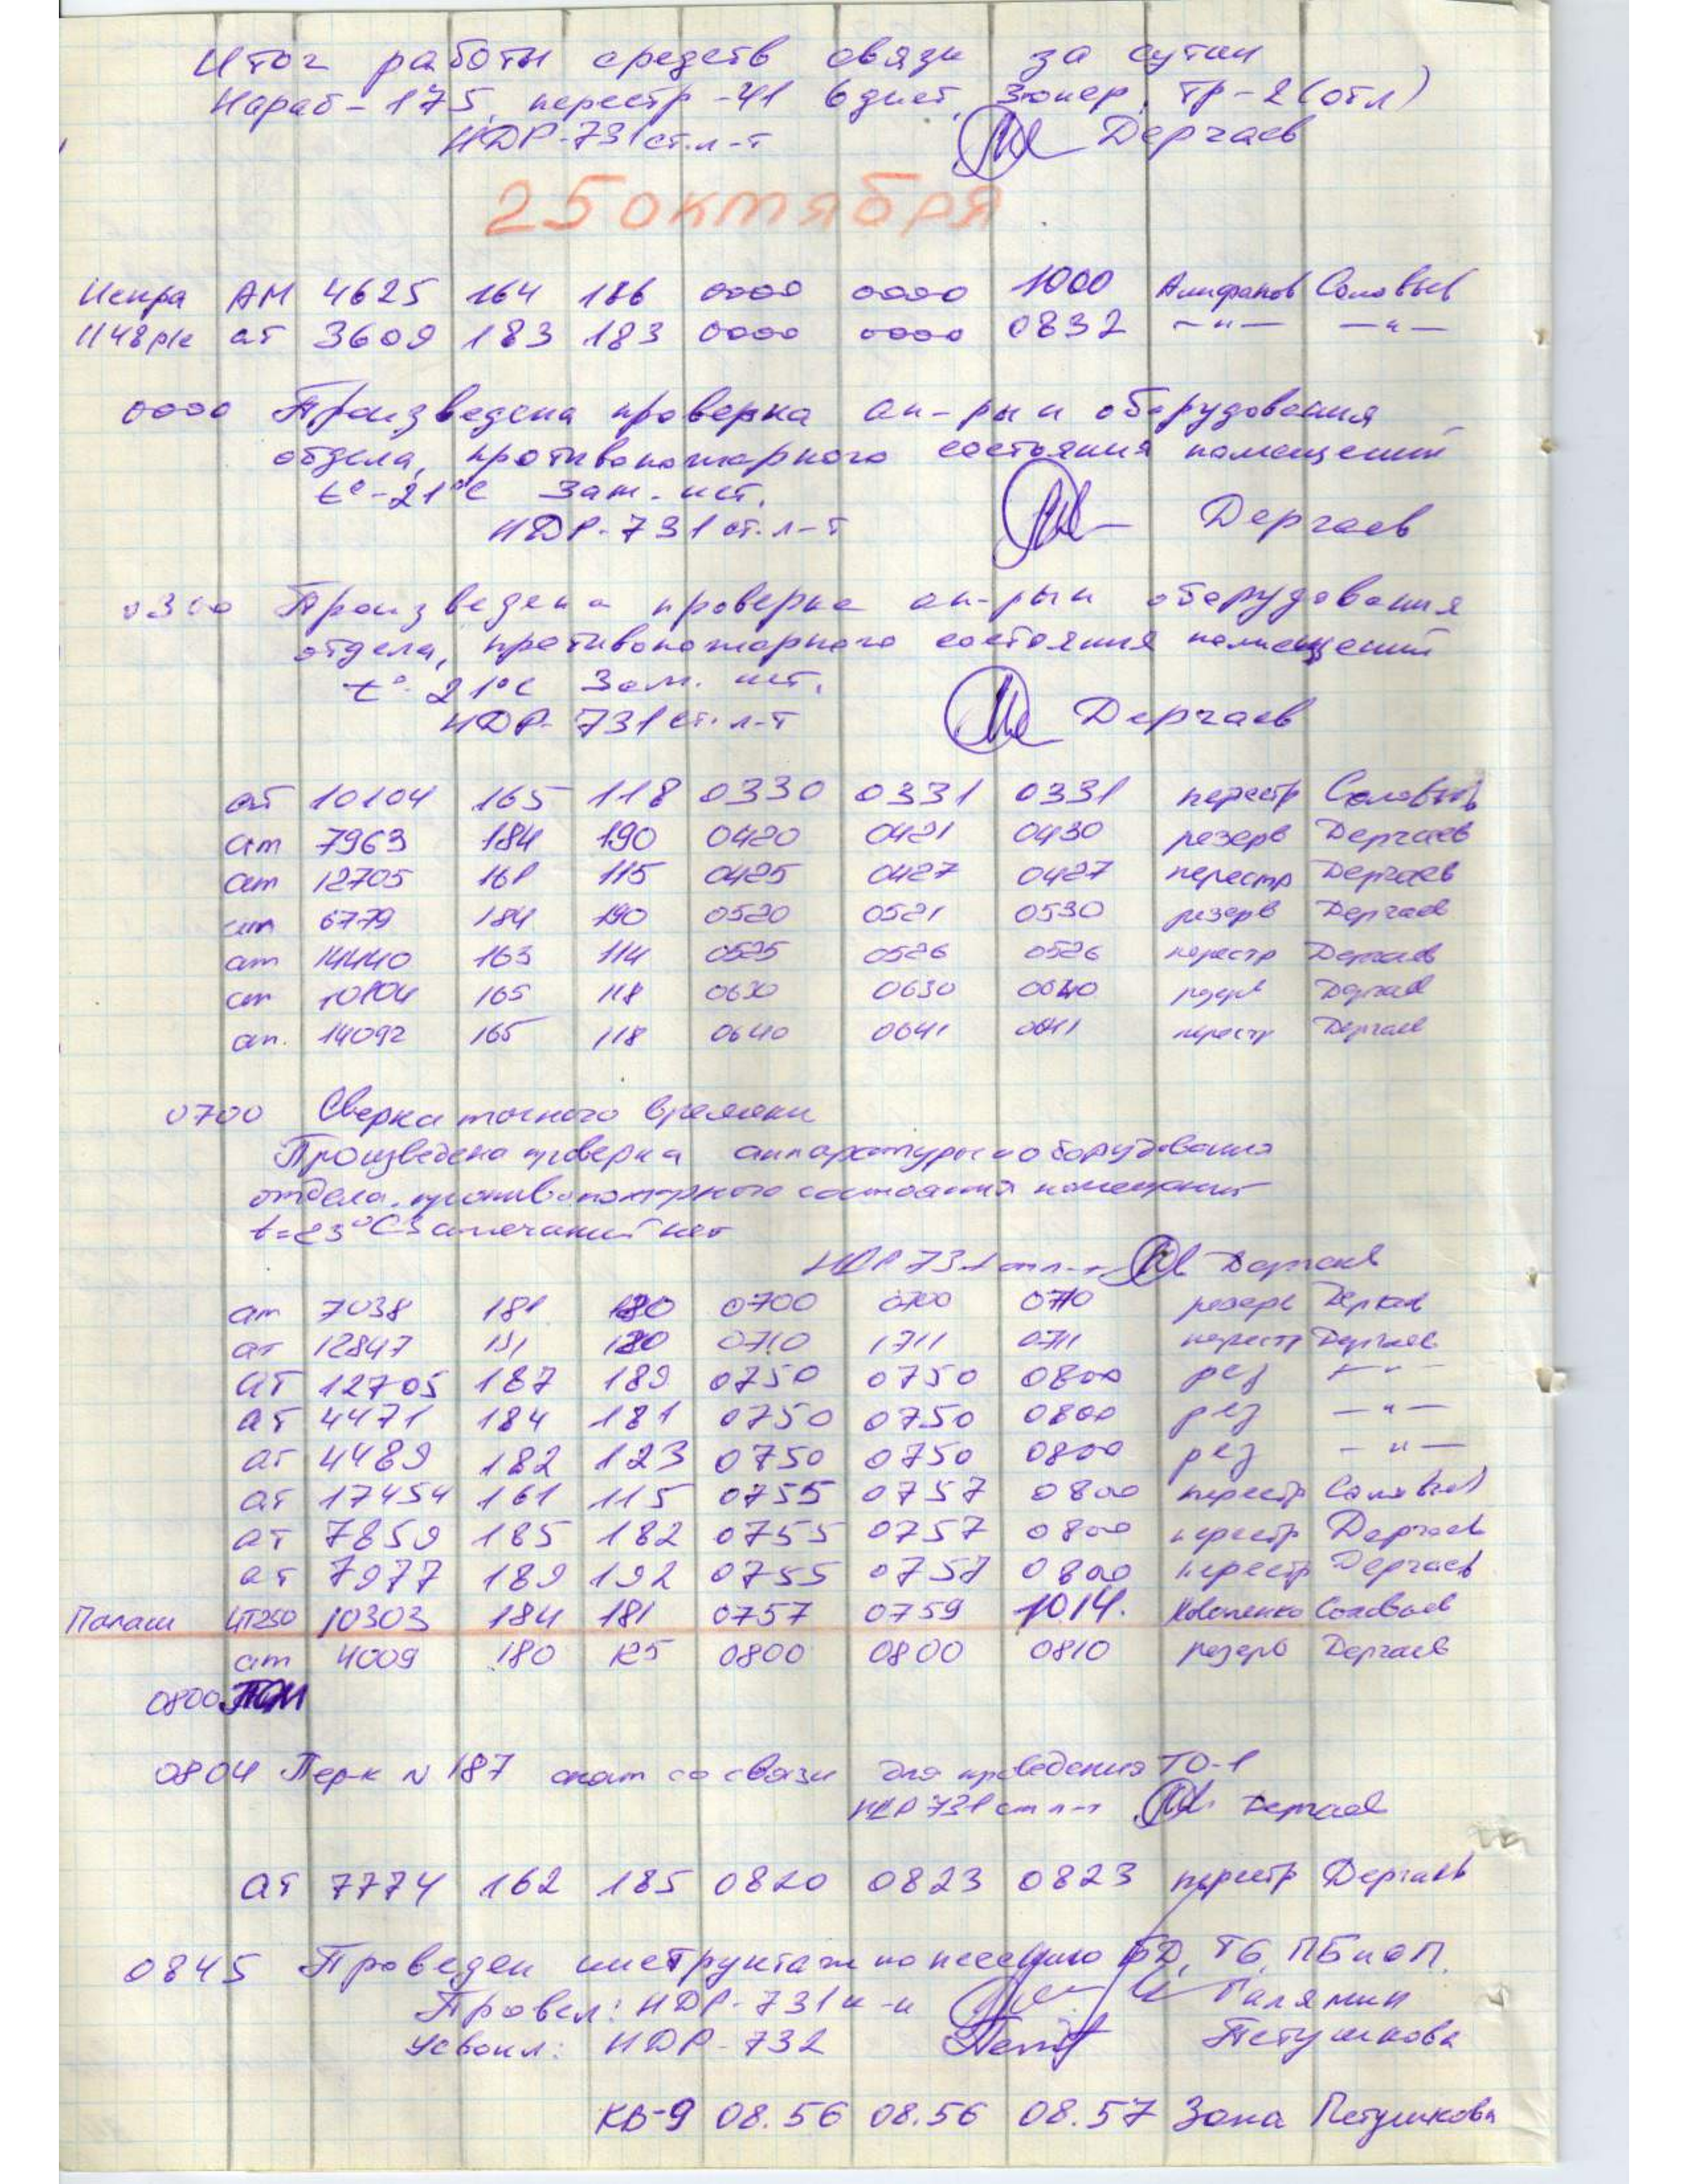 Итог работы средств связи за сутки
Нараб-175, перестр-41 6днет, 3юнер, тр-2(отл)
НДР-731 ст.л-т Дергаев
25 октября
АМ 4625 164 186 0000 0000 1000 Алифанов Соловьев
1148р/с ат 3609 183 183 0000 0000 0832 —"— —"—
0000 Произведена проверка ап-ры и оборудования
отдела, противопожарного состояния помещений
t°-21°C Зам. нет.
НДР-731 ст.л-т Дергаев
0300 Произведена проверка ап-ры и оборудования
отдела, противопожарного состояния помещений
t°-21°C Зам. нет.
НДР-731 ст.л-т Дергаев
ат 10104 165 118 0330 0331 0331 перестр Соловьев
ат 7963 184 190 0420 0421 0430 резерв Дергаев
ат 12705 161 115 0425 0427 0427 перестр Дергаев
ат 6779 184 190 0520 0521 0530 резерв Дергаев
ат 14440 163 114 0525 0526 0526 перестр Дергаев
ат 10104 165 118 0630 0630 0640 резерв Дергаев
ат. 14092 165 118 0640 0641 0641 перестр Дергаев
0700 Сверка точного времени
Произведена проверка аппаратуры и оборудования
отдела, противопожарного состояния помещений
t=23°C Замечаний нет
НДР 731 ст л-т Дергаев
ат 7038 181 180 0700 0700 0710 резерв Дергаев
ат 12847 181 180 0710 1711 0711 перестр Дергаев
ат 12705 187 189 0750 0750 0800 рез —"—
ат 4471 184 181 0750 0750 0800 рез —"—
ат 4489 182 123 0750 0750 0800 рез —"—
ат 17454 161 115 0755 0757 0800 перестр Соловьев
ат 7859 185 182 0755 0757 0800 перестр Дергаев
ат 7977 189 192 0755 0757 0800 перестр Дергаев
Палаш ЧТ250 10303 184 181 0757 0759 1014. Коваленко Соловьев
ат 4009 180 125 0800 0800 0810 резерв Дергаев
0800
0804 Пер-к N 187 снят со связи для проведения ТО-1
НДР 731 ст л-т Дергаев
ат 7774 162 185 0820 0823 0823 перестр Дергаев
0845 Проведен инструктаж по несению БД, ТБ, ПБ и ОП.
Провел: НДР-731 к-н Галямин
Усвоил: НДР-732 Петушкова
КВ-9 08.56 08.56 08.57 Зона Петушкова